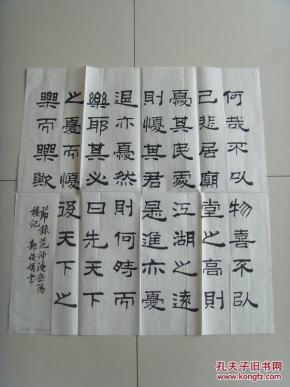 何哉不以物喜不以
己悲居廟堂之高則
憂其民處江湖之遠
則憂其君是進亦憂
退亦憂然則何時而
樂耶其必曰先天下
之憂而憂後天下之
樂而樂歟
節錄范仲淹岳陽
樓記
孔夫子旧书网